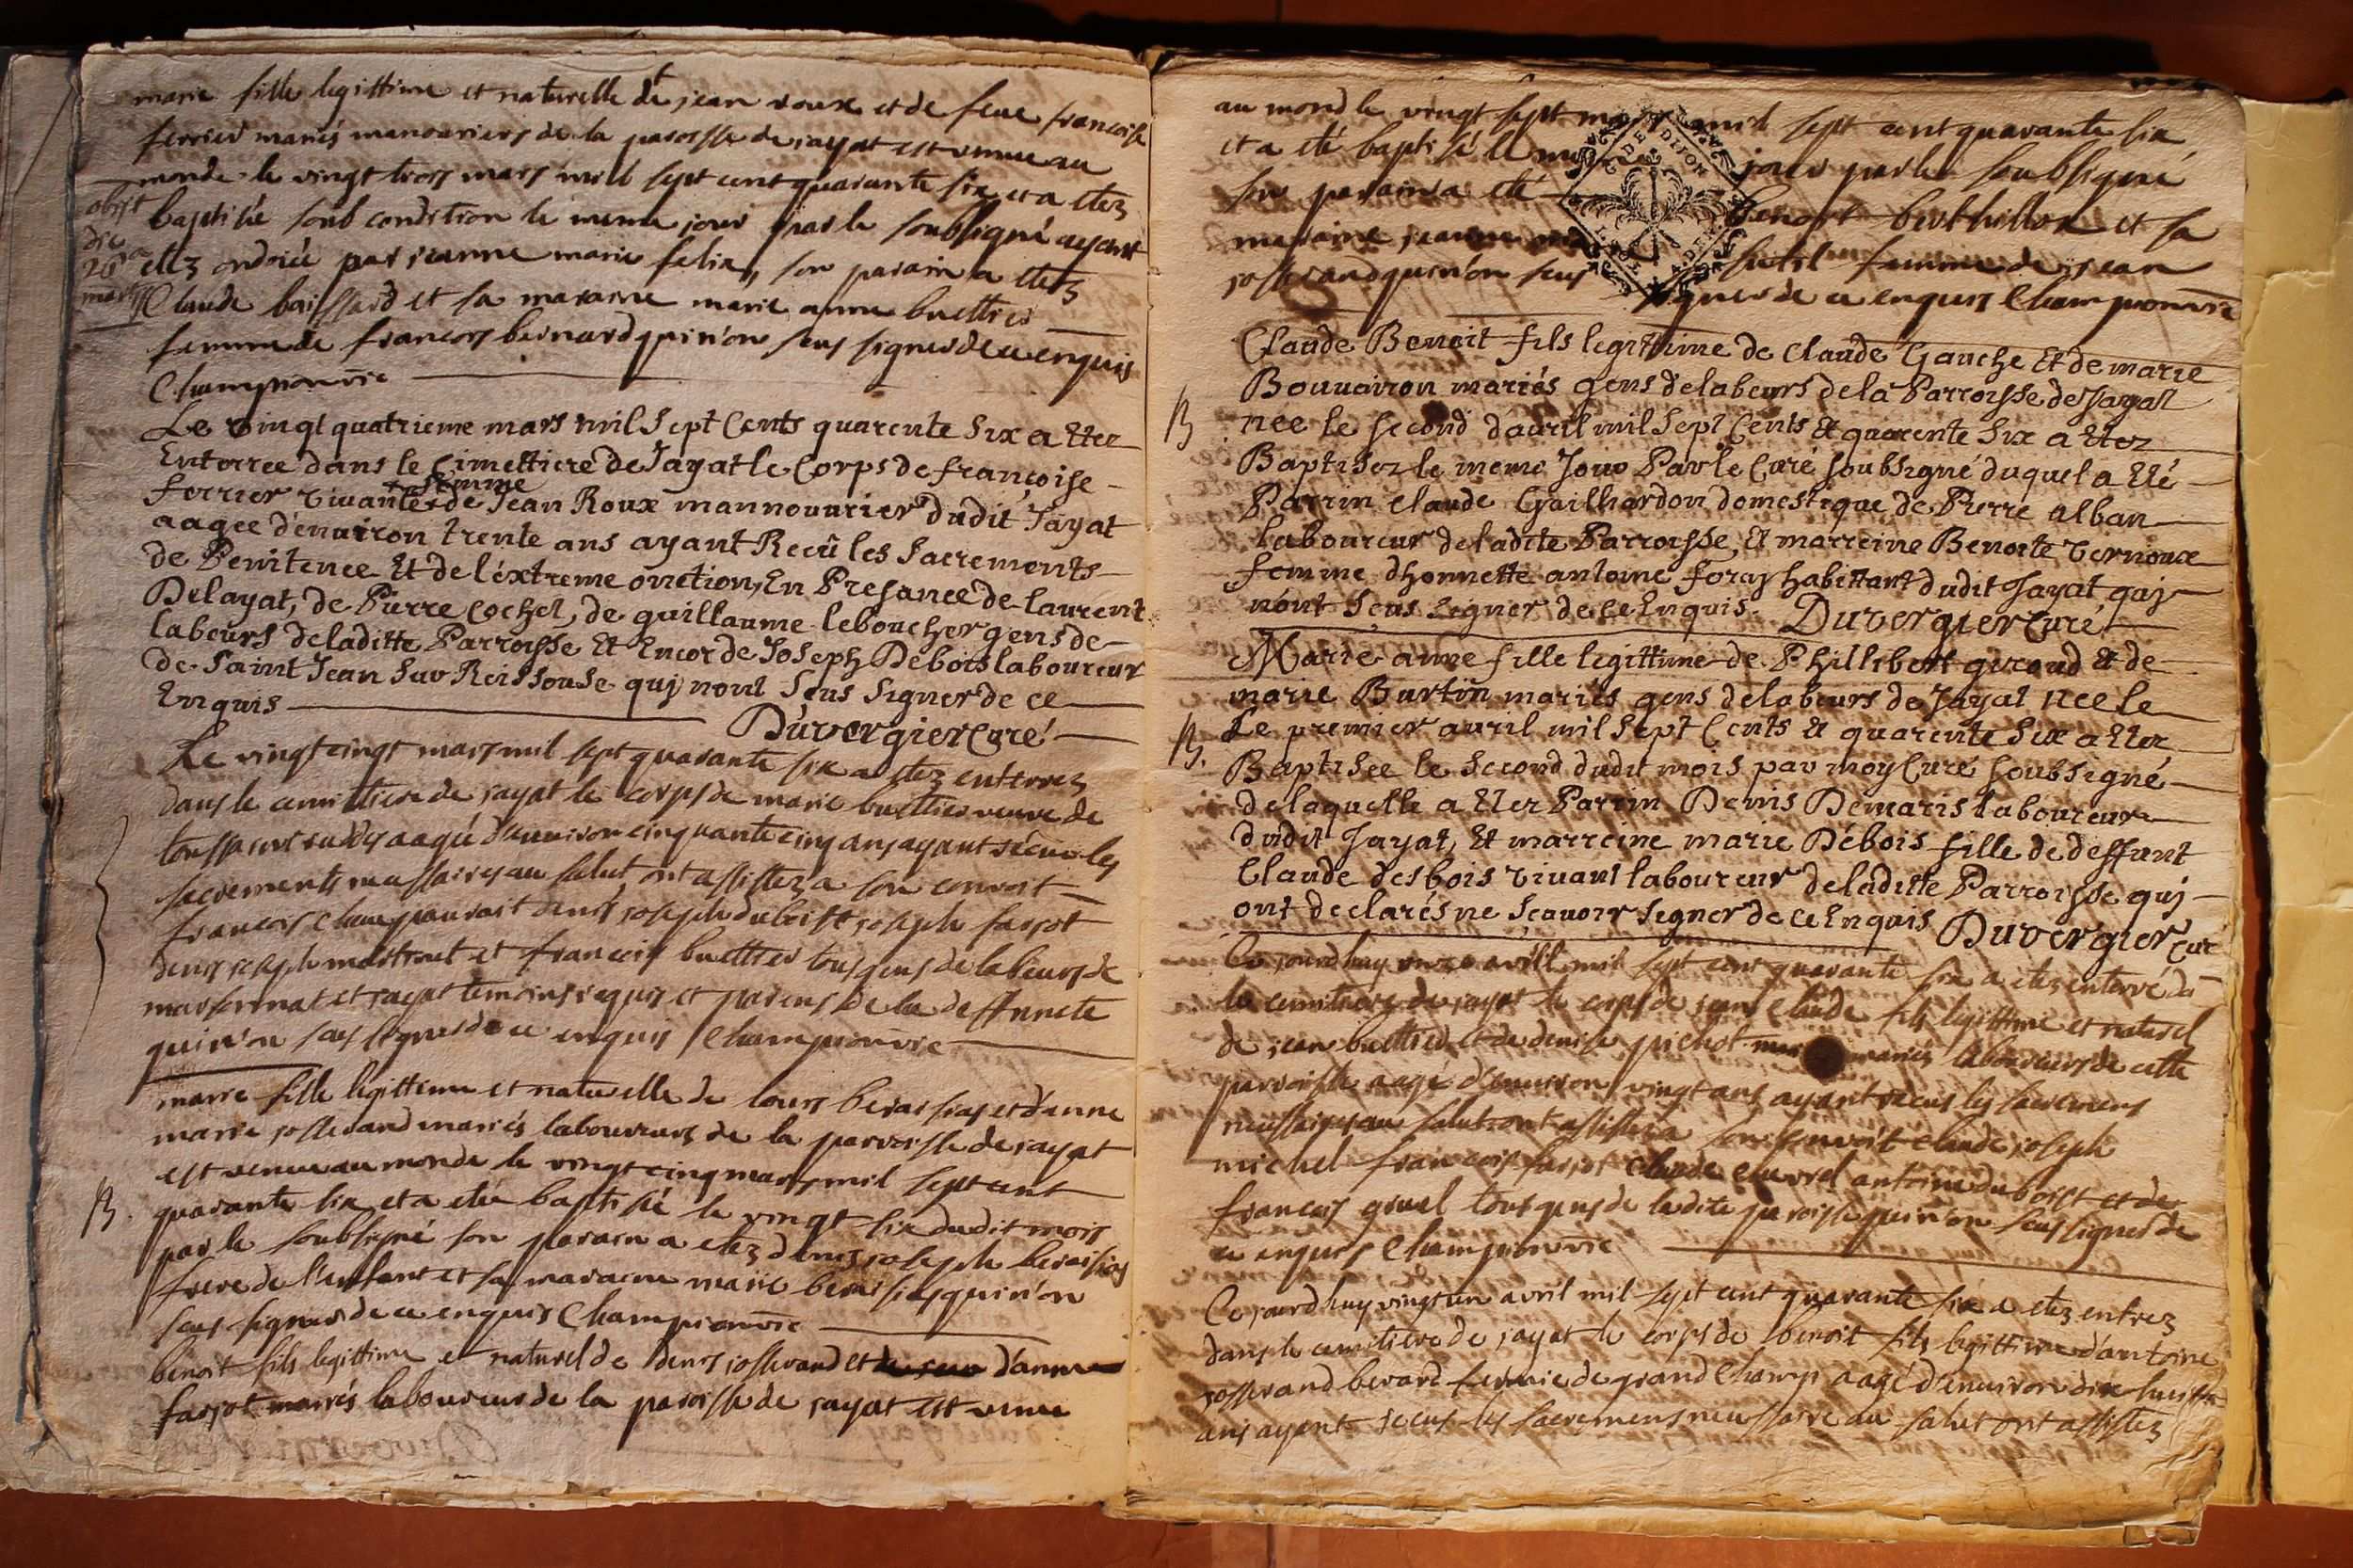 marie fille legittime et naturelle de jean roux et de feue francoise
ferrier mariés manouvriers de la paroisse de jayat est venue au
monde le vingt trois mars mil sept cent quarante six et a etez
baptisée soub condition le meme jour par le soubsigné ayant
etez ondoiée par jeanne marie felix, son parain a etez
Claude boissard et sa maraine marie anne buellier
femme de francois bernard qui n'on seus signer de ce enquis
Championvie
obyt
die
26a
martii
Le vingt quatrieme mars mil Sept Cents quarente Six a Etez
Enterree dans le Cimettiere de Jayat le Corps de françoise
femme
ferrier vivante de Jean Roux mannouvrier dudit Jayat
aagee d'environ trente ans ayant Reçû les Sacrements
de Penitence Et de l'éxtreme onction, En Presance de laurent
Delayat, de Pierre Cochet, de guillaume leboucher gens de
labeurs de laditte Parroisse Et Encor de Joseph Debois laboureur
de Saint Jean Sur Reissouse quj nont Sçus Signer de ce
Enquis
Duvergier Curé
Le vingt cinqt mars mil sept quarante six a etez enterrez
dans le cemittiere de jayat le corps de marie buellier veuve de
aagée d'environ cinquante cinq ans ayant récue les
sacrements necessaires au salut, ont assistez a son convoit
francois denis joseph duboist joseph farjot
denis joseph et francois buellier tous gens de labeurs de
marsonnat et jayat temoins requis et parens de la deffuncte
qui n'on seus signer de ce enquis Championvie
marie fille legittime et naturelle de louis beraisias et d'anne
marie josserand mariés laboureurs de la parroisse de jayat
est venue au monde le vingt cinq mars mil sept cent
B.
quarante six et a eté baptisé le vingt six dudit mois
par le soubsigné son parain a etez denis joseph beraisias
frere de l'enfant et sa maraine marie beraisias qui n'on
seus signer de ce enquis Championvie
benoit fils legittime et naturel de denis josserand et d'anne
farjot mariés laboureurs de la paroisse de jayat est venu
au mond le vingt sept mars mil sept cent quarante six
et a eté baptisé le meme jour par le soubsigné
son parain a eté benoit berthillon et sa
maraine jeanne femme de jean
josserand qui n'on seus signer de ce enquis Championvie
G. DE DIJON
Claude Benoit fils legittime de Claude Gauche Et de marie
Bouvairon mariés gens de labeurs de la Parroisse de Jayat
B
née le second d'avril mil Sept Cents Et quarente Six a Etez
Baptisez le meme Jour Par le Curé Soubsigné duquel a Eté
Parrin Claude Gailhardon domestique de Pierre alban
laboureur de ladite Parroisse, Et marreine Benoite vernoux
femme d'honnette antoine foraj habittant dudit Jayat quj
n'ont Sçus Signer de ce Enquis. Duvergier Curé
Marie anne fille legittime de Phillibert giroud Et de
marie Burtin mariés gens de labeurs de Jayat née le
B.
Le premier avril mil Sept Cents Et quarente Six a Etez
Baptisee le Second dudit mois par moy Curé Soubsigné
de laquelle a Etez Parrin Denis Demaris laboureur
dudit Jayat, Et marreine marie Débois fille de deffunt
Claude desbois vivant laboureur de laditte Parroisse quj
ont declarés ne Sçavoir Signer de ce Enquis Duvergier Curé
Ce jourdhuy onze avril mil sept cent quarante six a etez enterré da
le cemitiere de jayat le corps de jean Claude fils legittime et naturel
de jean buellier et de denise pichot mariés laboureurs de cette
parroisse aagé d'environ vingt ans ayant récus les sacremens
necessaires au salut ont assistez a son convoit Claude joseph
michel francois farjot Claude antoine duboist et de
francois gruel tous gens de ladite paroisse qui n'on seus signer de
ce enquis Championvie
Ce jourdhuy vingt un avril mil sept cent quarante six a etez entrez
dans le cemitiere de jayat le corps de benoit fils legittime d'antoine
josserand berard de grand Champ aagé d'environ dix huit
ans ayant récus les sacremens necessaire au salut ont assistez